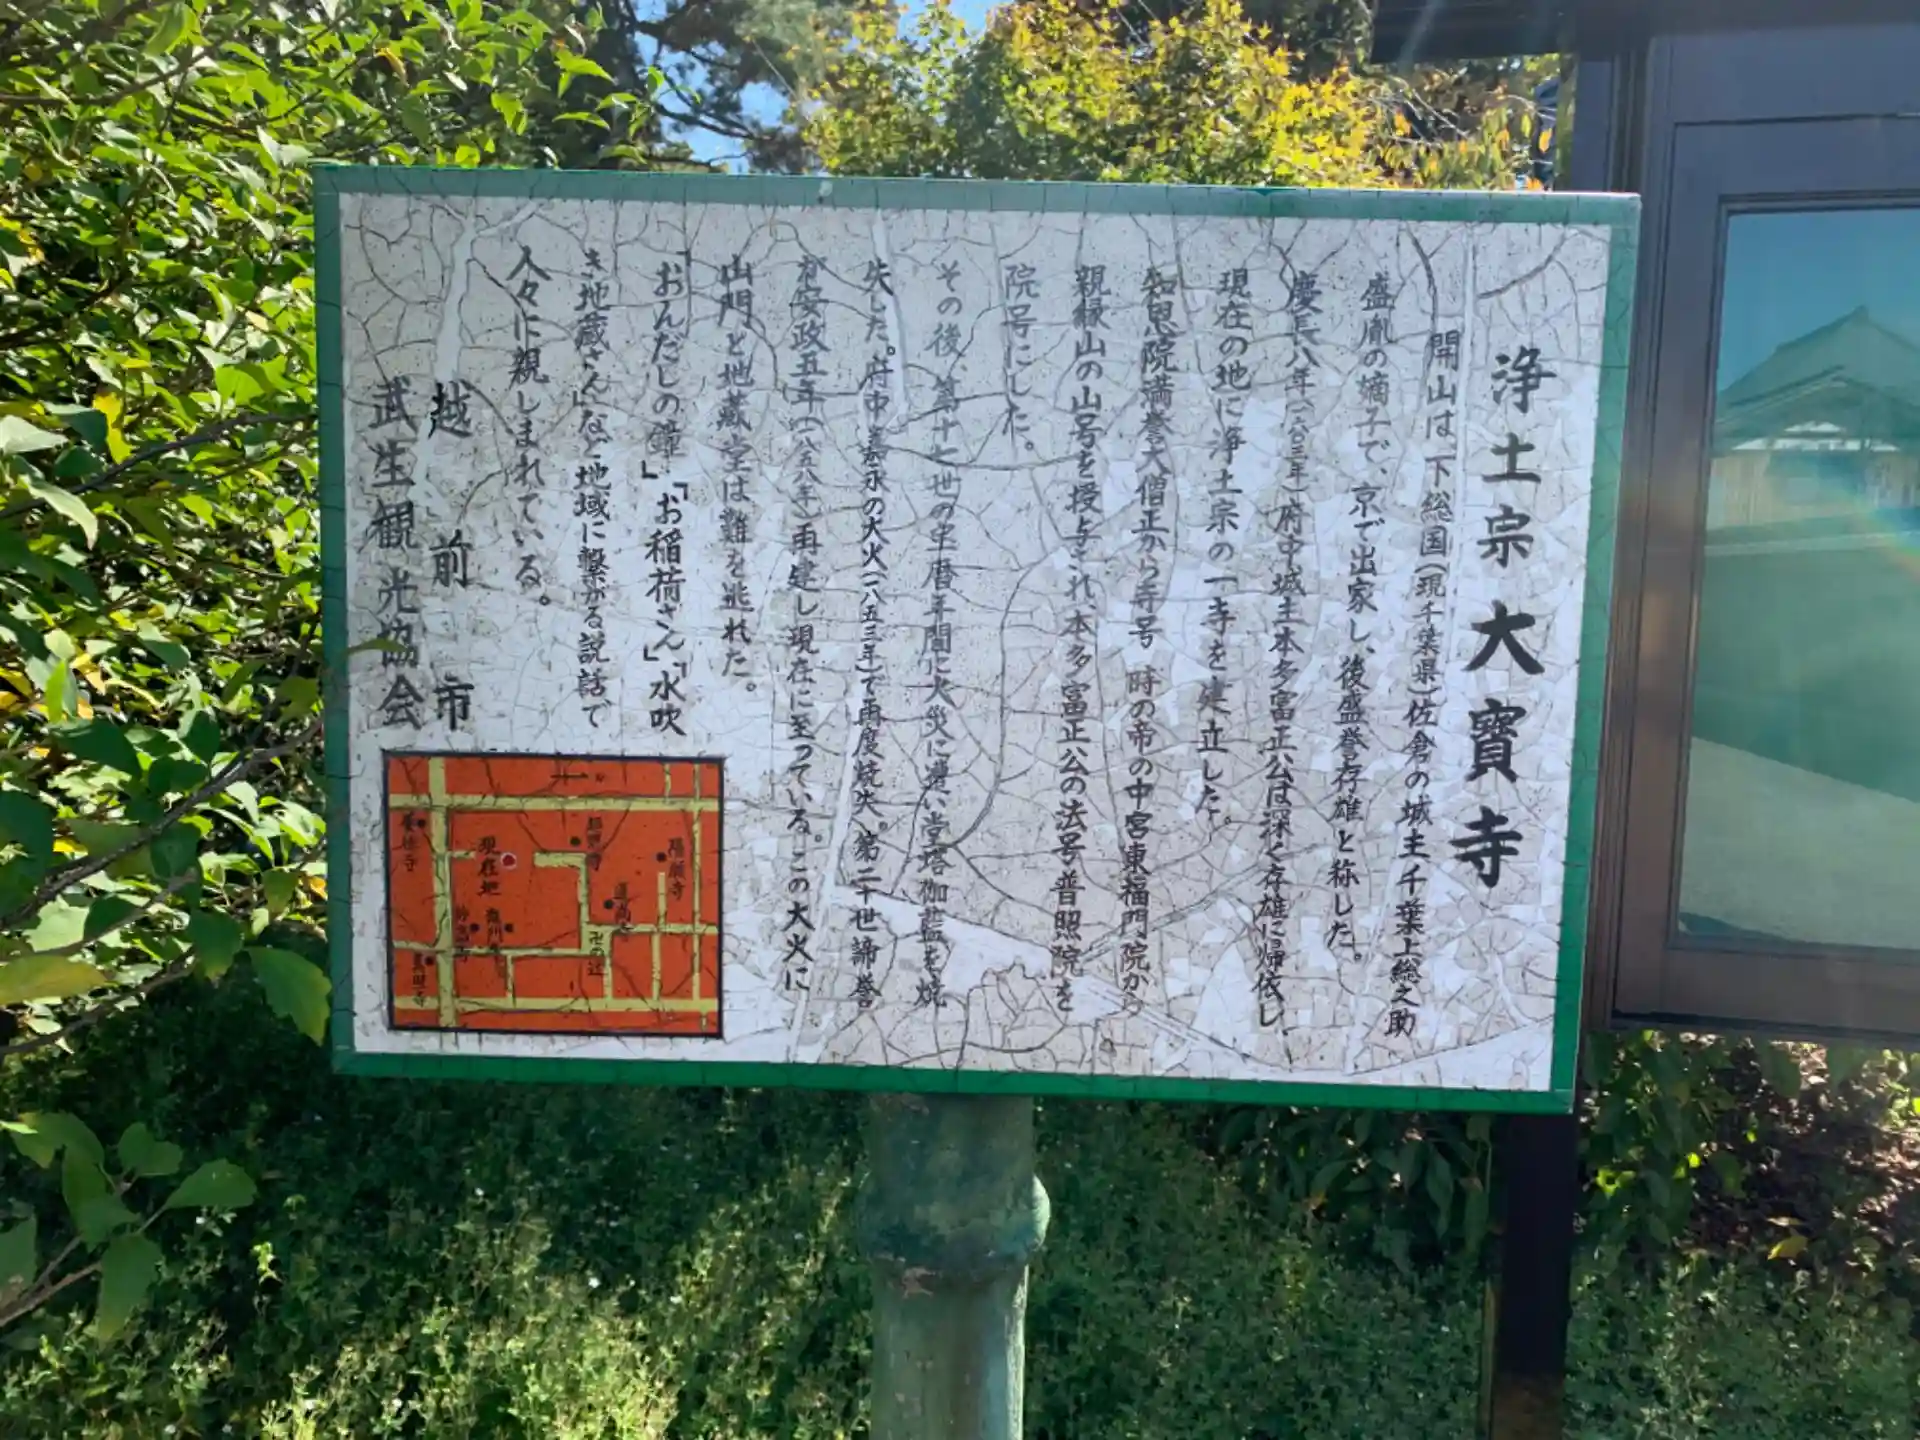 浄土宗 大寳寺
開山は、下総国(現千葉県)佐倉の城主千葉上総之助
盛胤の嫡子で、京で出家し、後盛誉存雄と称した。
慶長八年(一六〇三年)府中城主本多富正公は深く存雄に帰依し
現在の地に浄土宗の一寺を建立した。
知恩院満誉大僧正から寺号 時の帝の中宮東福門院から
親縁山の山号を授与され、本多富正公の法号普照院を
院号にした。
その後、第十七世の宝暦年間に火災に遭い堂塔伽藍を焼
失した。府中嘉永の大火(一八五三年)で再度焼失。第二十世諦誉
が安政五年(一八五八年)再建し現在に至っている。この大火に
山門と地蔵堂は難を逃れた。
「おんだしの鐘」「お稲荷さん」「水吹
き地蔵さん」など地域に繋がる説話で
人々に親しまれている。
越前市
武生観光協会
現在地
陽願寺
卍の辻